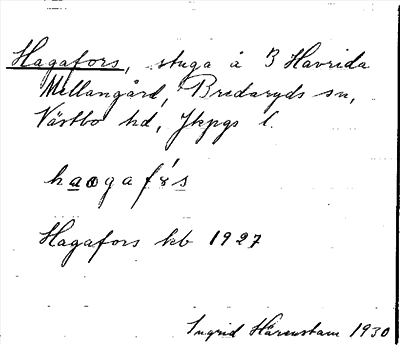 Hagafors, stuga å 3 Havrida
Mellangård, Bredaryds sn,
Västbo hd, Jkpgs l.
haogafo̕s
Hagafors kb 1927
Ingrid Härenstam 1930